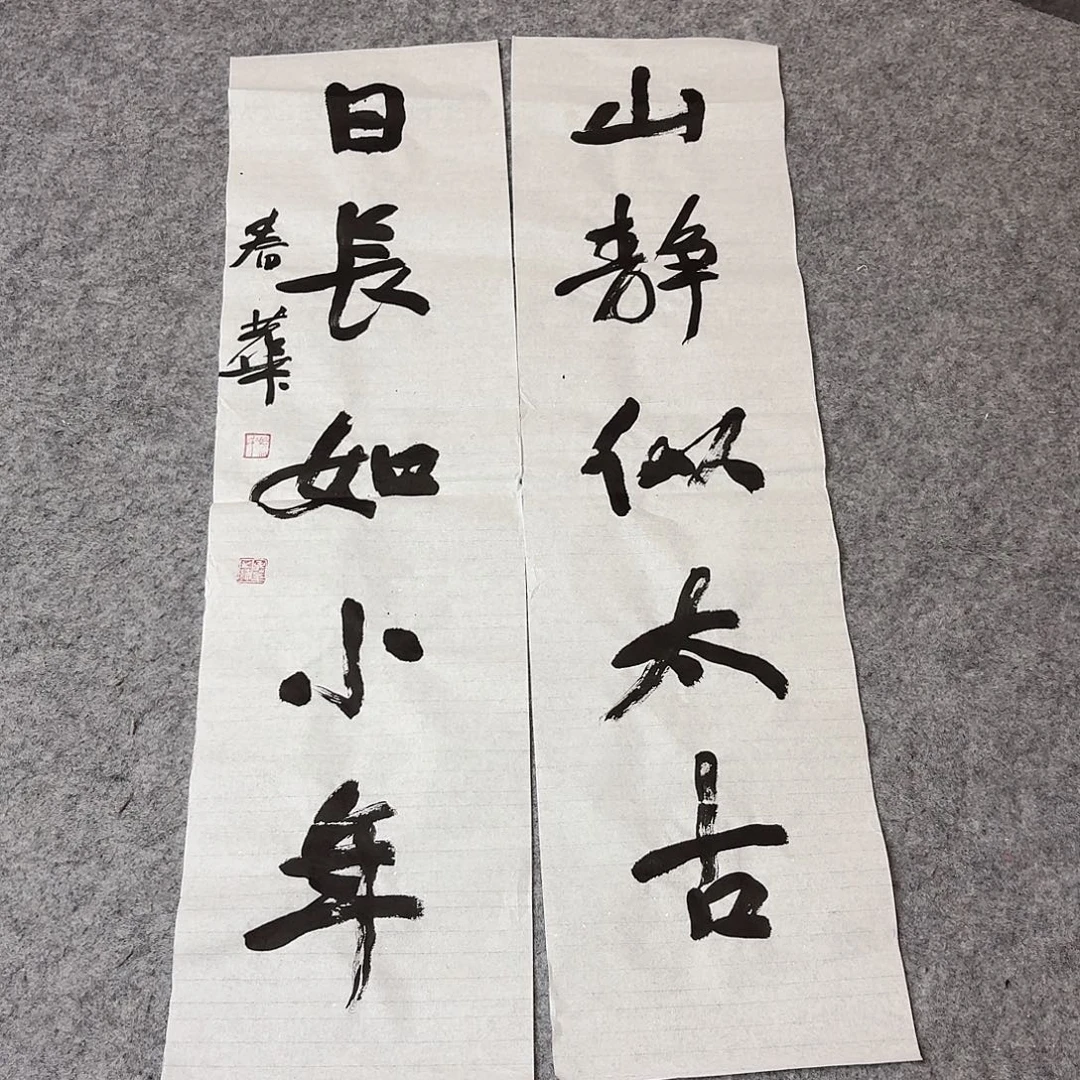 山静似太古
日長如小年
春華